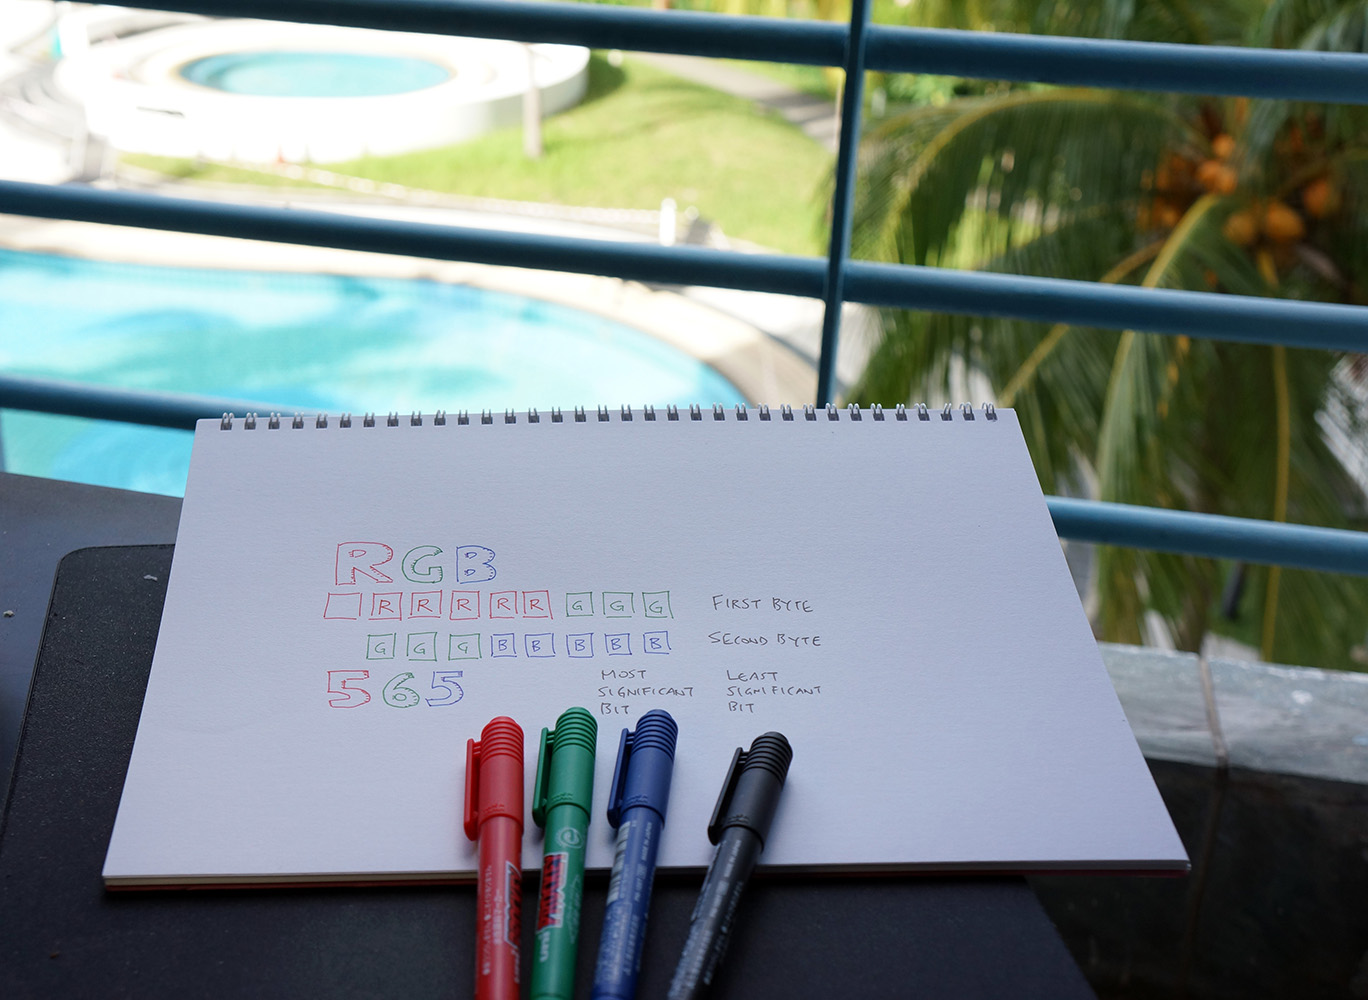 RGB
R R R R R G G G FIRST BYTE
G G G B B B B B SECOND BYTE
565
MOST SIGNIFICANT BIT
LEAST SIGNIFICANT BIT